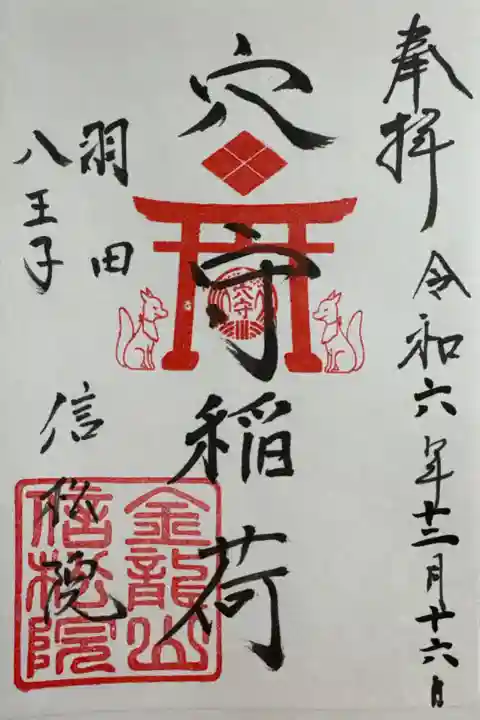 奉拝
令和六年十二月十六日
穴守稲荷
穴守
羽田
八王子
信松院
金龍山
信松院